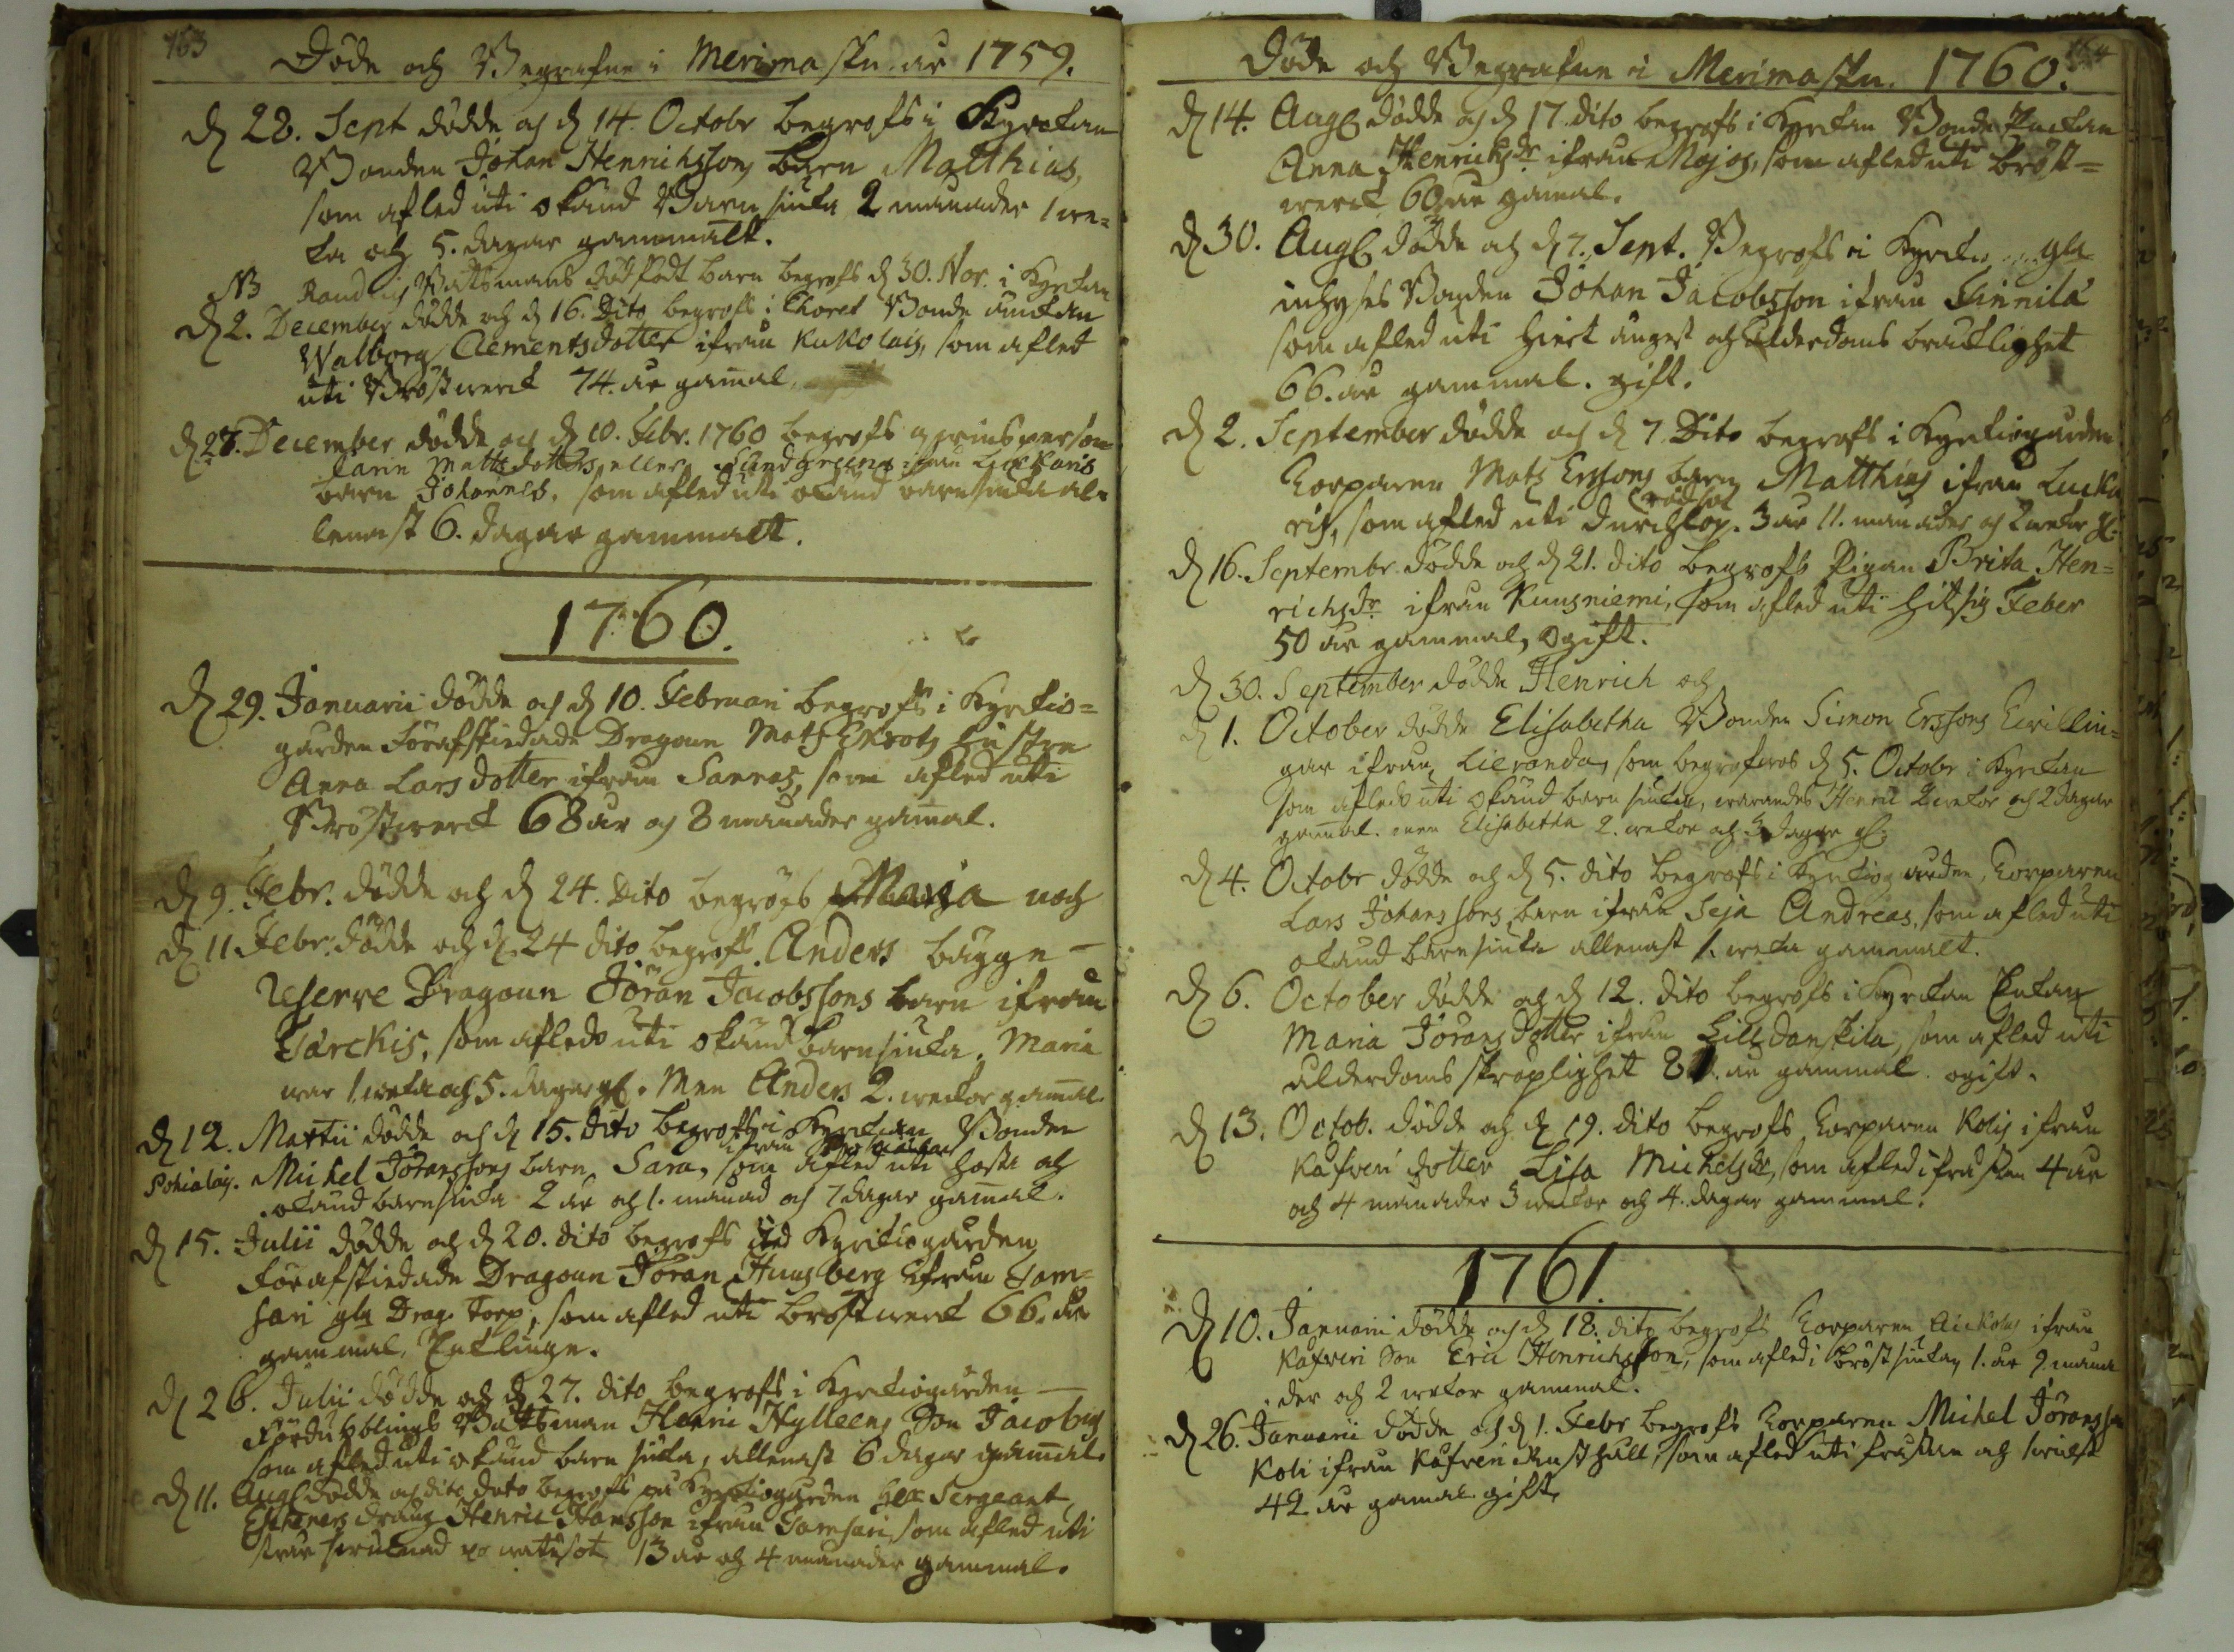 153
Döde och Begrafne i Merimasku år 1759.
d 28. Sept dödde och d 14. Octobr begrofs i Kyrckan
Bonden Johan Henrichssons barn Matthias,
som afled uti okänd Barnsiuka 2 månader 1 we=
ka och 5. dagar gammalt.
NB Båtsmans dödfödt barn begrofs d 30. Nov. i Kyrkan
d 2. December dödde och d 16. Dito begrofs i Choret Bonde änckan
Walborg Clementsdotter ifrån Kukolais, som afled
uti Bröstwerck 74. år gamal.
d 27. December dödde och d 10. Febr. 1760 begrofs
Carin Mattsdotters eller ifrån Luckaris
barn Johannes, som afled uti okänd barnsiuka al=
lenast 6. dagar gammalt.
1760.
d 29. Januarii dödde och d 10. Februari begrofs i Kyrkio=
gården Förafskiedade Dragoun Mats Ekrots hustru
Anna Larsdotter ifrån Sannas, som afled uti
Bröstwerck 68 år och 8 månader gamal.
d 9. Febr. dödde och d 24. Dito begrofs Maria och
d 11 Febr. dödde och d 24 dito begrofs Anders bägge
Reserve Dragoun Jöran Jacobssons barn ifrån
Järckis, som afledo uti okänd barnsiuka. Maria
war 1. weka och 5. dagar gl. Men Anders 2. weckor gamal.
d 12. Martii dödde och d 15. dito begrofs i Kyrckan Bonden
Pohialais. Michel Jöranssons barn Sara, som afled uti hosta och
okänd barnsiuka 2 år och 1. månad och 7 dagar gamal.
d 15. Julii dödde och d 20. dito begrofs Kyrkiogården
Förafskiedade Dragoun Jöran Huusberg ifrån Tam=
sari gla Drag. Torp, som afled uti bröstwerck 66. år
gammal, Enklinge.
d 26. Julii dödde och d 27. dito begrofs i Kyrkiogården
Fördubblings Båtsman Henric Hylleens Son Jacobus
som afled uti okänd barnsiuka, allenast 6 dagar gamal.
d 11. Aug. dödde och dito begrofs på Kyrkiogården Sergeant
dräng Henric Hansson ifrån Tamsari, som afled uti
watusot 13 år och 4 månader gammal.
Döde och Begrafne i Merimasku. 1760.
d 14. Aug. dödde och d 17. dito begrofs i Kyrkan Bonde Enckan
Anna Henrichsdr ifrån Mojos, som afled uti bröst=
werck 60 år gamal.
d 30. Aug. dödde och d 7. Sept. Begrofs i Kyrckan gla
inhyses Bonden Johan Jacobsson ifrån Finnilä
som afled uti hiert ångest och ålderdoms bräcklighet
66. år gammal. gift.
d 2. September dödde och d 7 Dito begrofs i Kyrkiogården
Torparen Mats Erssons barn Matthias ifrån Lucka
ris, som afled uti rödsot. 3 år 11. månader och 2 wekor gl.
d 16. Septembr. dödde och d 21. dito begrofs Pigan Brita Hen=
richsdr ifrån Kuusniemi, som afled uti hitsig Feber
50 år gammal, ogift.
d 30. September dödde Henrich och
d 1. October dödde Elisabetha Bonden Simon Erssons twillin=
gar ifrån Lieranda, som begrofwos d 5. Octobr i Kyrckan
som afledo uti okänd barnsiuka, warandes Henric 2 wekor och 2 dagar
gamal. men Elisabetha 2. wekor och 3 dagar gl.
d 4. Octobr dödde och d 5. dito begrofs i Kyrkiogården, Torparen
Lars Johanssons barn ifrån Seja Andreas, som afled uti
okänd barnsiuka allenast 1. weka gammalt.
d 6. October dödde och d 12. dito begrofs i Kyrckan Enkan
Maria Jöransdotter ifrån Lilldanskila, som afled uti
ålderdoms skröplighet 81. år gammal. ogift.
d 13. Octob. dödde och d 19. dito begrofs Torparen Kolis ifrån
Käfveri dotter Lisa Michelsdr, som afled i frossan 4 år
och 4 månader 3 wekor och 4. dagar gammal.
1761.
d 10. Januarii dödde och d 18. dito begrofs Torparen ifrån
Käfveri Son Eric Henrichsson, som afled i bröstsiuka, 1. år 9 måna
der och 2 wekor gammal.
d 26. Januarii dödde och d 1. Febr begrofs Torparen Michel Jöransson
Koli ifrån Käfveri Rusthåll, som afled uti frossan och swulst
42 år gamal gift.